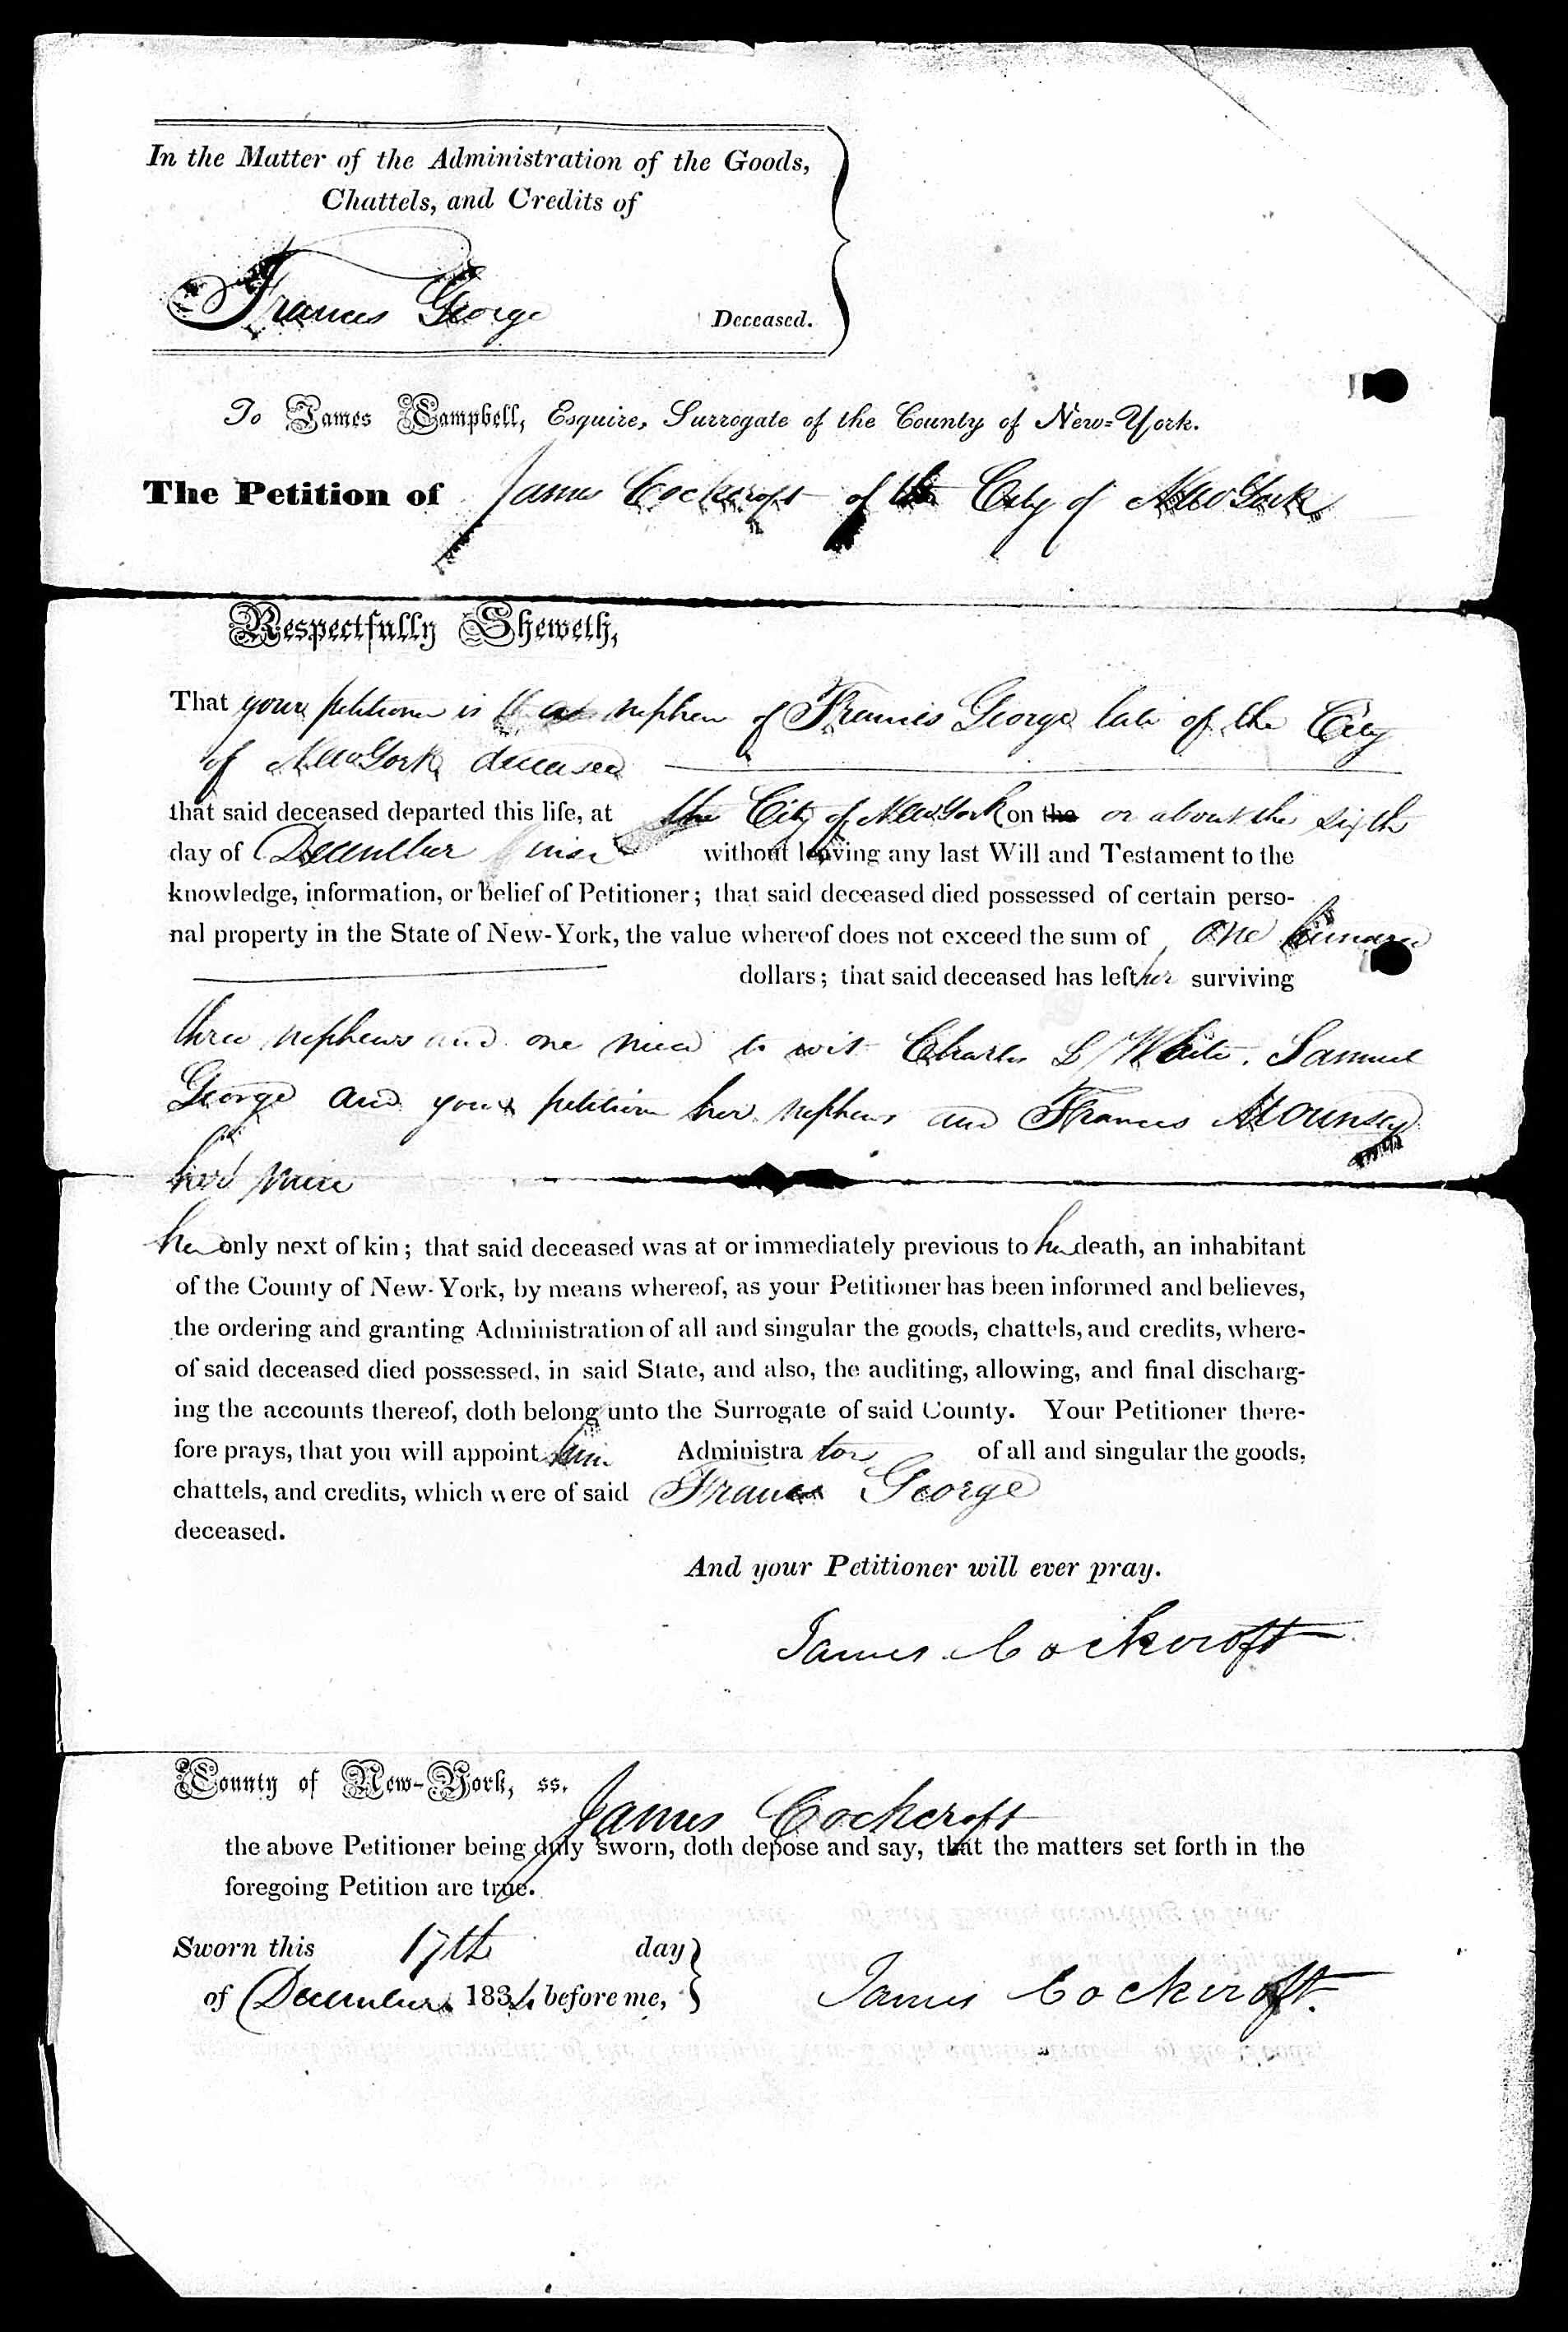 In the Matter of the Administration of the Goods,
Chattels, and Credits of
Frances George Deceased.
To James Campbell, Esquire, Surrogate of the County of New-York.
The Petition of James Cockcroft of the City of New York
Respectfully Sheweth,
That your petitioner is a nephew of Frances George late of the City
of New York deceased
that said deceased departed this life, at the City of New York on the or about the sixth
day of December without leaving any last Will and Testament to the
knowledge, information, or belief of Petitioner; that said deceased died possessed of certain perso-
nal property in the State of New-York, the value whereof does not exceed the sum of one hundred
dollars; that said deceased has left her surviving
three nephews and one niece to wit Charles L White, Samuel
George and your petitioner her nephews and Frances Mounsey
her niece
her only next of kin; that said deceased was at or immediately previous to her death, an inhabitant
of the County of New-York, by means whereof, as your Petitioner has been informed and believes,
the ordering and granting Administration of all and singular the goods, chattels, and credits, where-
of said deceased died possessed, in said State, and also, the auditing, allowing, and final discharg-
ing the accounts thereof, doth belong unto the Surrogate of said County. Your Petitioner there-
fore prays, that you will appoint him Administrator of all and singular the goods,
chattels, and credits, which were of said Frances George
deceased.
And your Petitioner will ever pray.
James Cockcroft
County of New-York, ss.
James Cockcroft
the above Petitioner being duly sworn, doth depose and say, that the matters set forth in the
foregoing Petition are true.
Sworn this 17th day
of December 183 before me,
James Cockcroft.